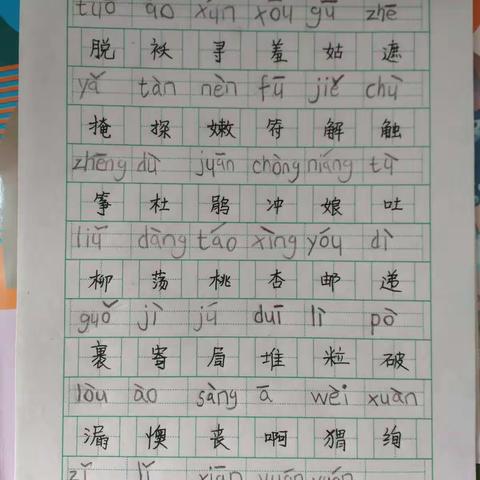 tuō ǎo xún xōu gū zhē
脱 袄 寻 羞 姑 遮
yǎ tàn nèn fú jiě chù
掩 探 嫩 符 解 触
zhēng dù juān chòng niáng tǔ
筝 杜 鹃 冲 娘 吐
liǔ dàng táo xìng yóu dì
柳 荡 桃 杏 邮 递
guǒ jì jú duī lì pò
裹 寄 局 堆 粒 破
lòu ào sàng ā wèi xuàn
漏 懊 丧 啊 猬 绚
zǐ lǐ xiān yuán yuán